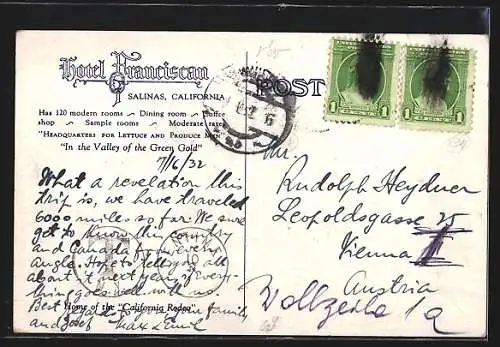 Hotel Franciscan
SALINAS, CALIFORNIA
Has 120 modern rooms ~ Dining room ~ Coffee
shop ~ Sample rooms ~ Moderate rates
"HEADQUARTERS FOR LETTUCE AND PRODUCE MEN"
"In the Valley of the Green Gold"
7/16/32
What a revelation this
trip is, we have traveled
6000 miles so far. We sure
get to know this country
and Canada from every
angle. Hope to tell you all
about it next year if every-
thing goes well with us.
Best to you family
Home of the "California Rodeo"
and Josef Max & Emil
POST
1 1
1 1
Mr.
Rudolph Heydner
Leopoldsgasse 25
Vienna II
Austria
Wollzeile 1a